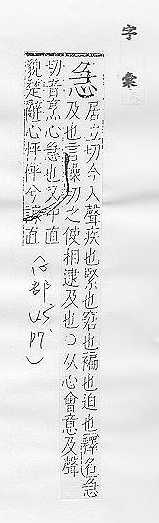 字彙
急 居立切今入聲疾也緊也窘也褊也迫也釋名急
及也言操切之使相逮及也○从心會意及聲
切音〇心急也又中直
貌楚辭心怦怦兮諒直
(心部、45、P7)